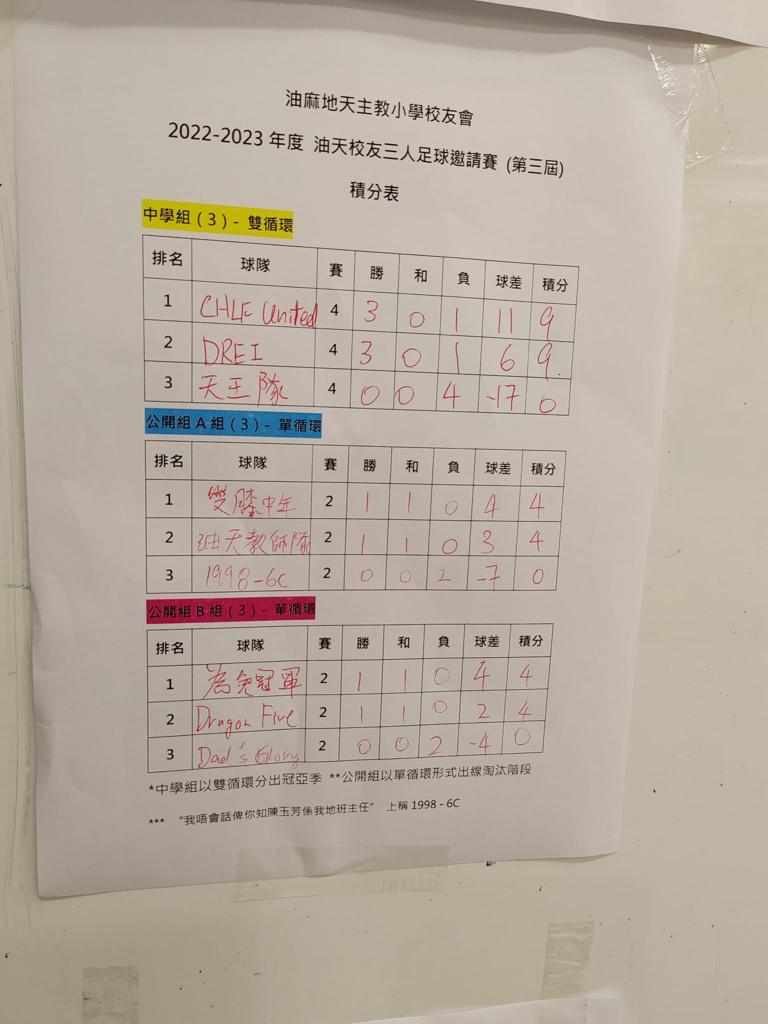 油麻地天主教小學校友會
2022-2023 年度 油天校友三人足球邀請賽 (第三屆)
積分表
中學組 ( 3 ) - 雙循環
排名 球隊 賽 勝 和 負 球差 積分
1 CHLF United 4 3 0 1 11 9
2 DREI 4 3 0 1 6 9.
3 天王隊 4 0 0 4 -17 0
公開組 A 組 ( 3 ) - 單循環
排名 球隊 賽 勝 和 負 球差 積分
1 雙膝中年 2 1 1 0 4 4
2 油天教師隊 2 1 1 0 3 4
3 1998-6C 2 0 0 2 -7 0
公開組 B 組 ( 3 ) - 單循環
排名 球隊 賽 勝 和 負 球差 積分
1 為免冠軍 2 1 1 0 4 4
2 Dragon Five 2 1 1 0 2 4
3 Dad's Glory 2 0 0 2 -4 0.
*中學組以雙循環分出冠亞季 **公開組以單循環形式出線淘汰階段
*** "我唔會話俾你知陳玉芳係我地班主任" 上稱 1998 - 6C